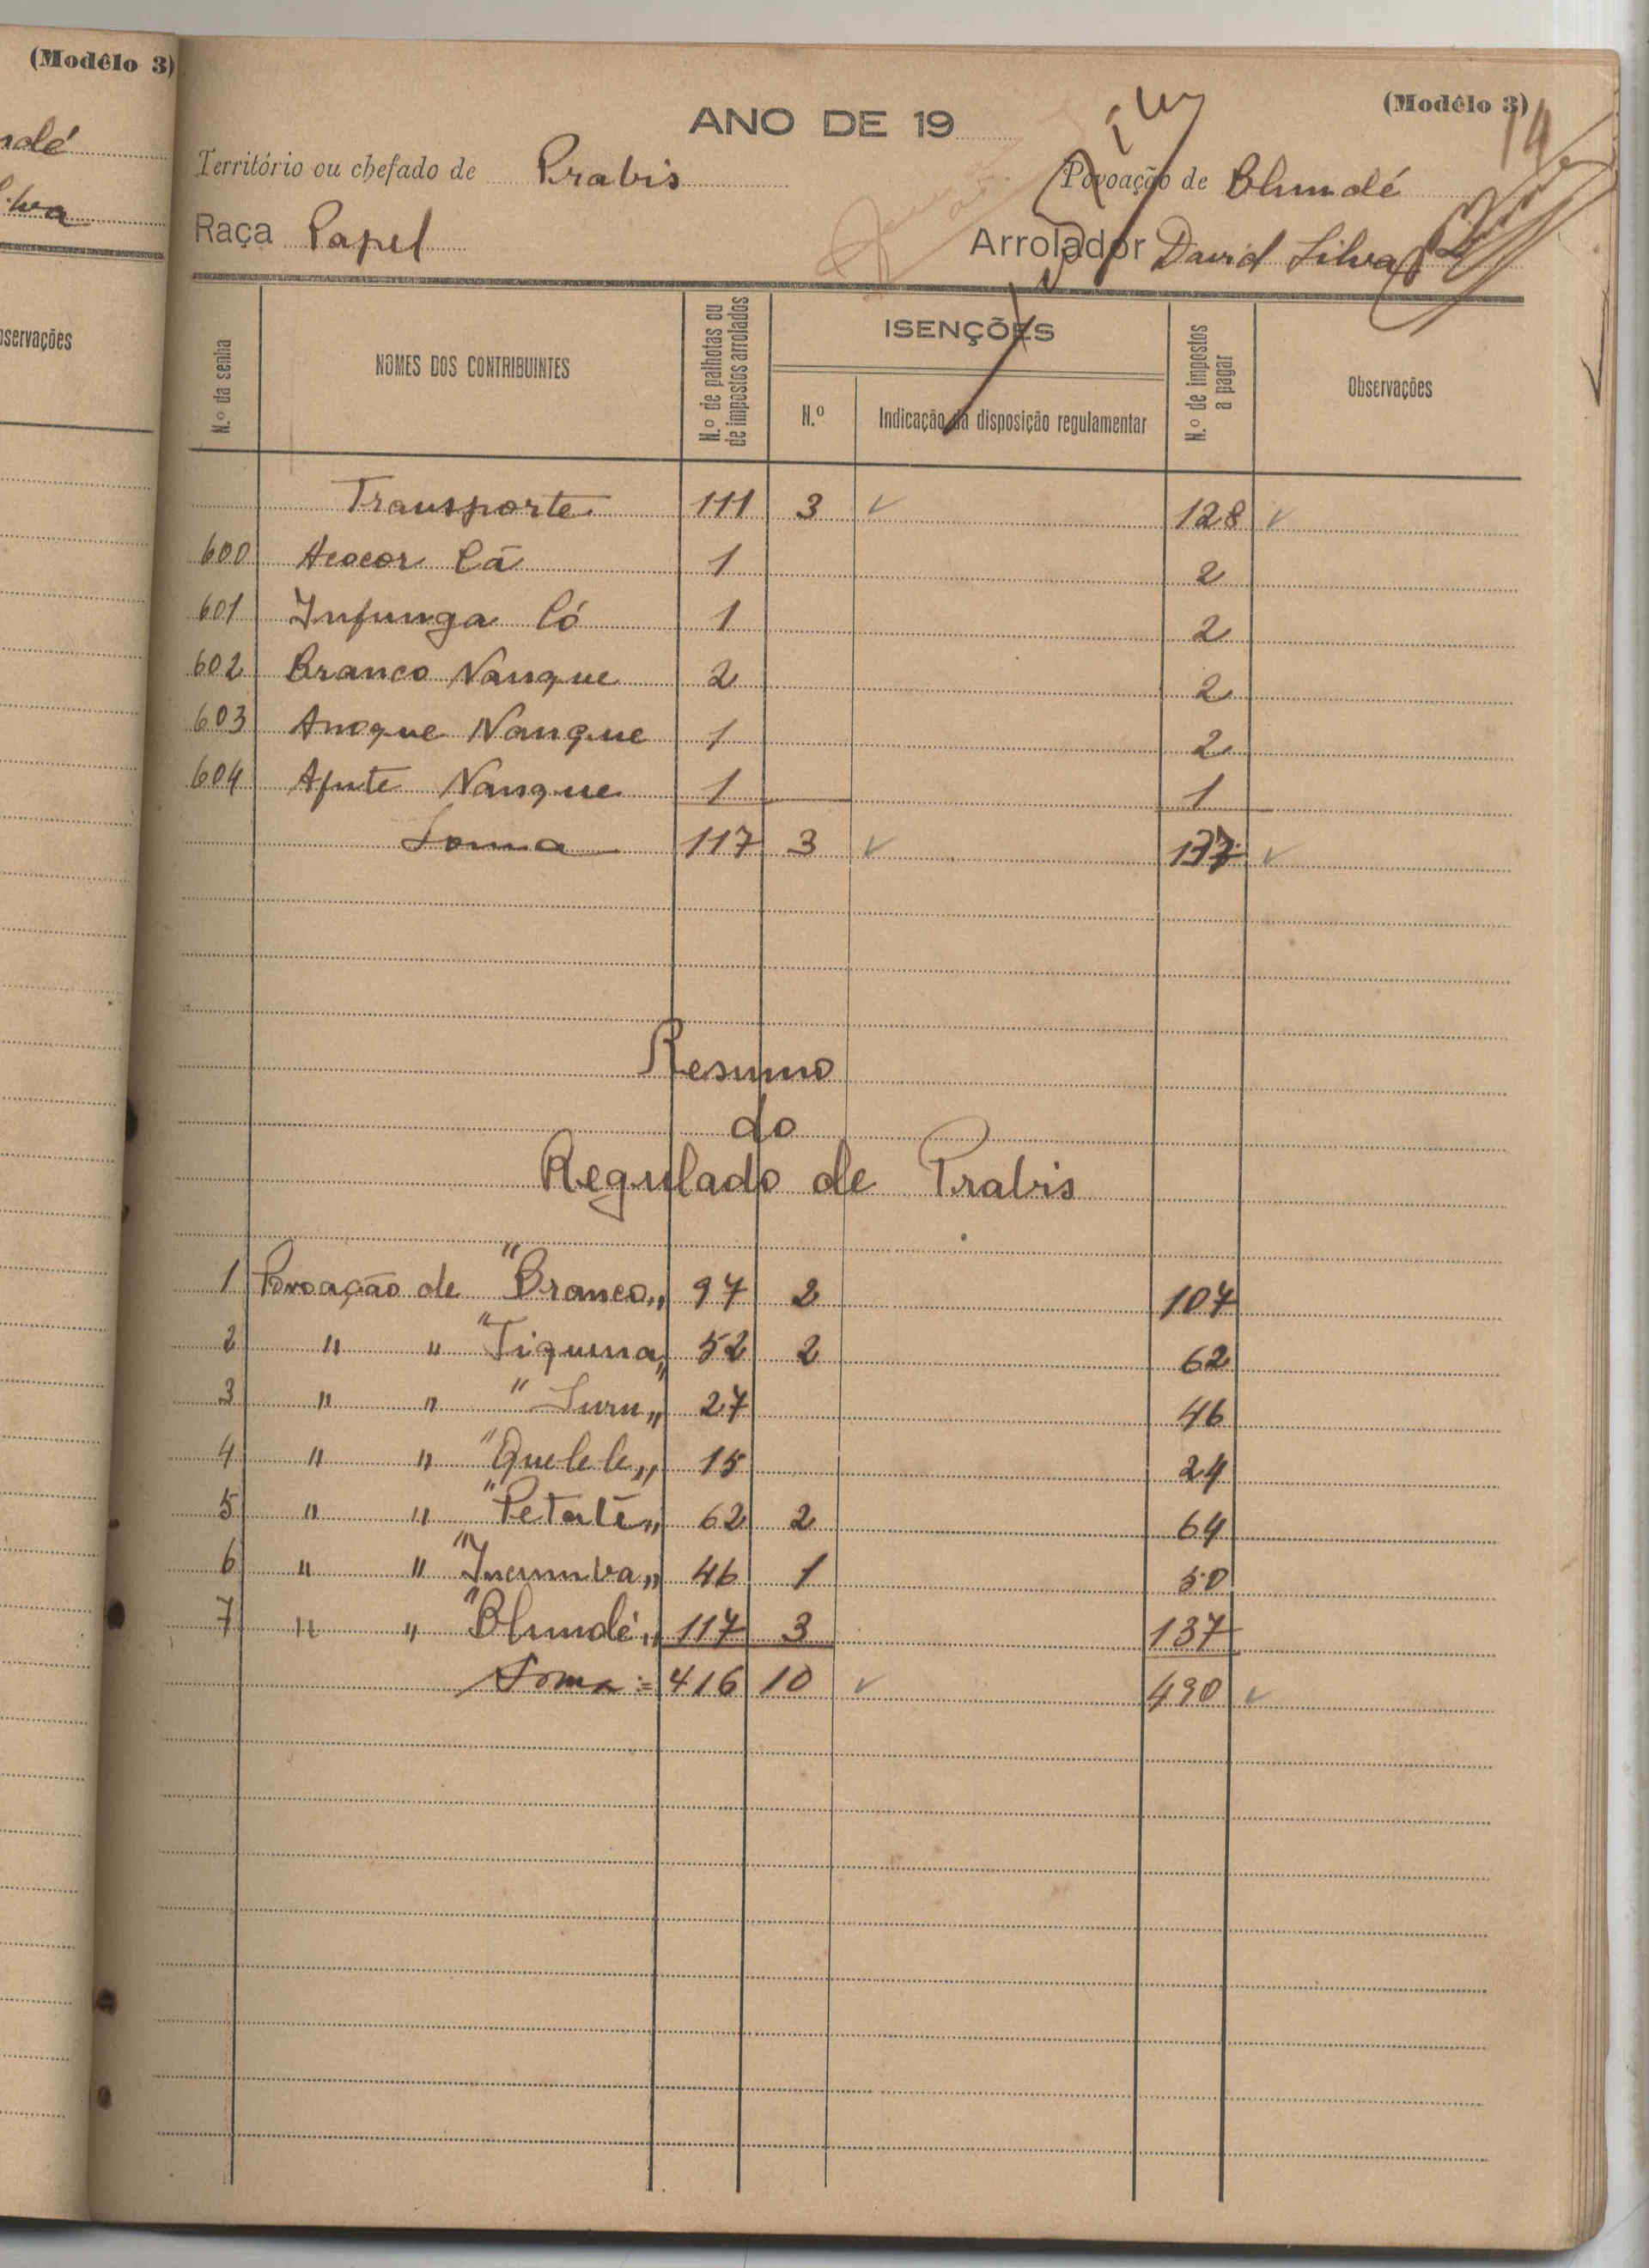 (Modêlo 3)
ndé
Silva
bservações
(Modêlo 3)
14
ANO DE 19
Território ou chefado de Prabis Povoação de Blundé
Raça Papel Arrolador David Silva
N.º da senha NOMES DOS CONTRIBUINTES N.º de palhotas ou de impostos arrolados ISENÇÕES N.º de impostos a pagar Observações
N.º Indicação da disposição regulamentar
Transporte 111 3 ✓ 128 ✓
600 Acocor Cá 1 2
601 Infunga Có 1 2
602 Branco Nanque 2 2
603 Anoque Nanque 1 2
604 Afute Nanque 1 1
Soma 117 3 ✓ 137 ✓
Resumo
do
Regulado de Prabis
1 Povoação de "Branco" 97 2 107
2 " " "Tiquina" 52 2 62
3 " " "Suru" 27 46
4 " " "Quelele" 15 24
5 " " "Petaté" 62 2 64
6 " " 46 1 50
7 " " "Blundé" 117 3 137
Soma = 416 10 ✓ 490 ✓